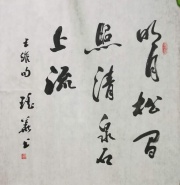 明月松间
照清泉石
上流
王维句